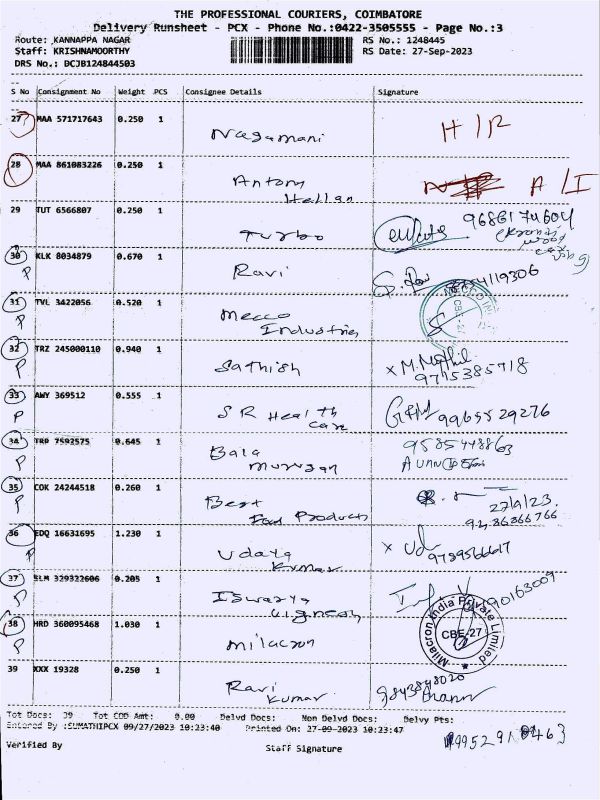 THE PROFESSIONAL COURIERS, COIMBATORE
Delivery Runsheet - PCX - Phone No.:0422-3505555 - Page No.:3
Route: KANNAPPA NAGAR RS No.: 1248445
Staff: KRISHNAMOORTHY RS Date: 27-Sep-2023
DRS No.: BCJB124844503
S No Consignment No Weight PCS Consignee Details Signature
27 MAA 571717643 0.250 1 Nagamani H/R
28 MAA 861083226 0.250 1 Antony A/I
29 TUT 6566807 0.250 1 Turbo 9686174604
30 KLK 8034879 0.670 1 Ravi
P
31 TVL 3422056 0.520 1 Mecco
P Industries
32 TRZ 245000110 0.940 1 Sathish x M.
P 9715385718
33 AWY 369512 0.555 1 S R Health 9965529276
P care
34 TRP 7592575 0.645 1 Bala
P murugan
35 COK 24244518 0.260 1 Best 27/9/23.
P Food Products
36 EDQ 16631695 1.230 1 Udaya x
P Kumar
37 SLM 329322606 0.205 1 Iswarya
P Vignesh
38 HRD 360095468 1.030 1 Milacron Milacron India Private Limited CBE-27
P
39 XXX 19328 0.250 1 Ravi 9843848020
Kumar
Tot Docs: 39 Tot COD Amt: 0.00 Delvd Docs: Non Delvd Docs: Delvy Pts:
Entered By :SUMATHIPCX 09/27/2023 10:23:40 Printed On: 27-09-2023 10:23:47
Verified By Staff Signature